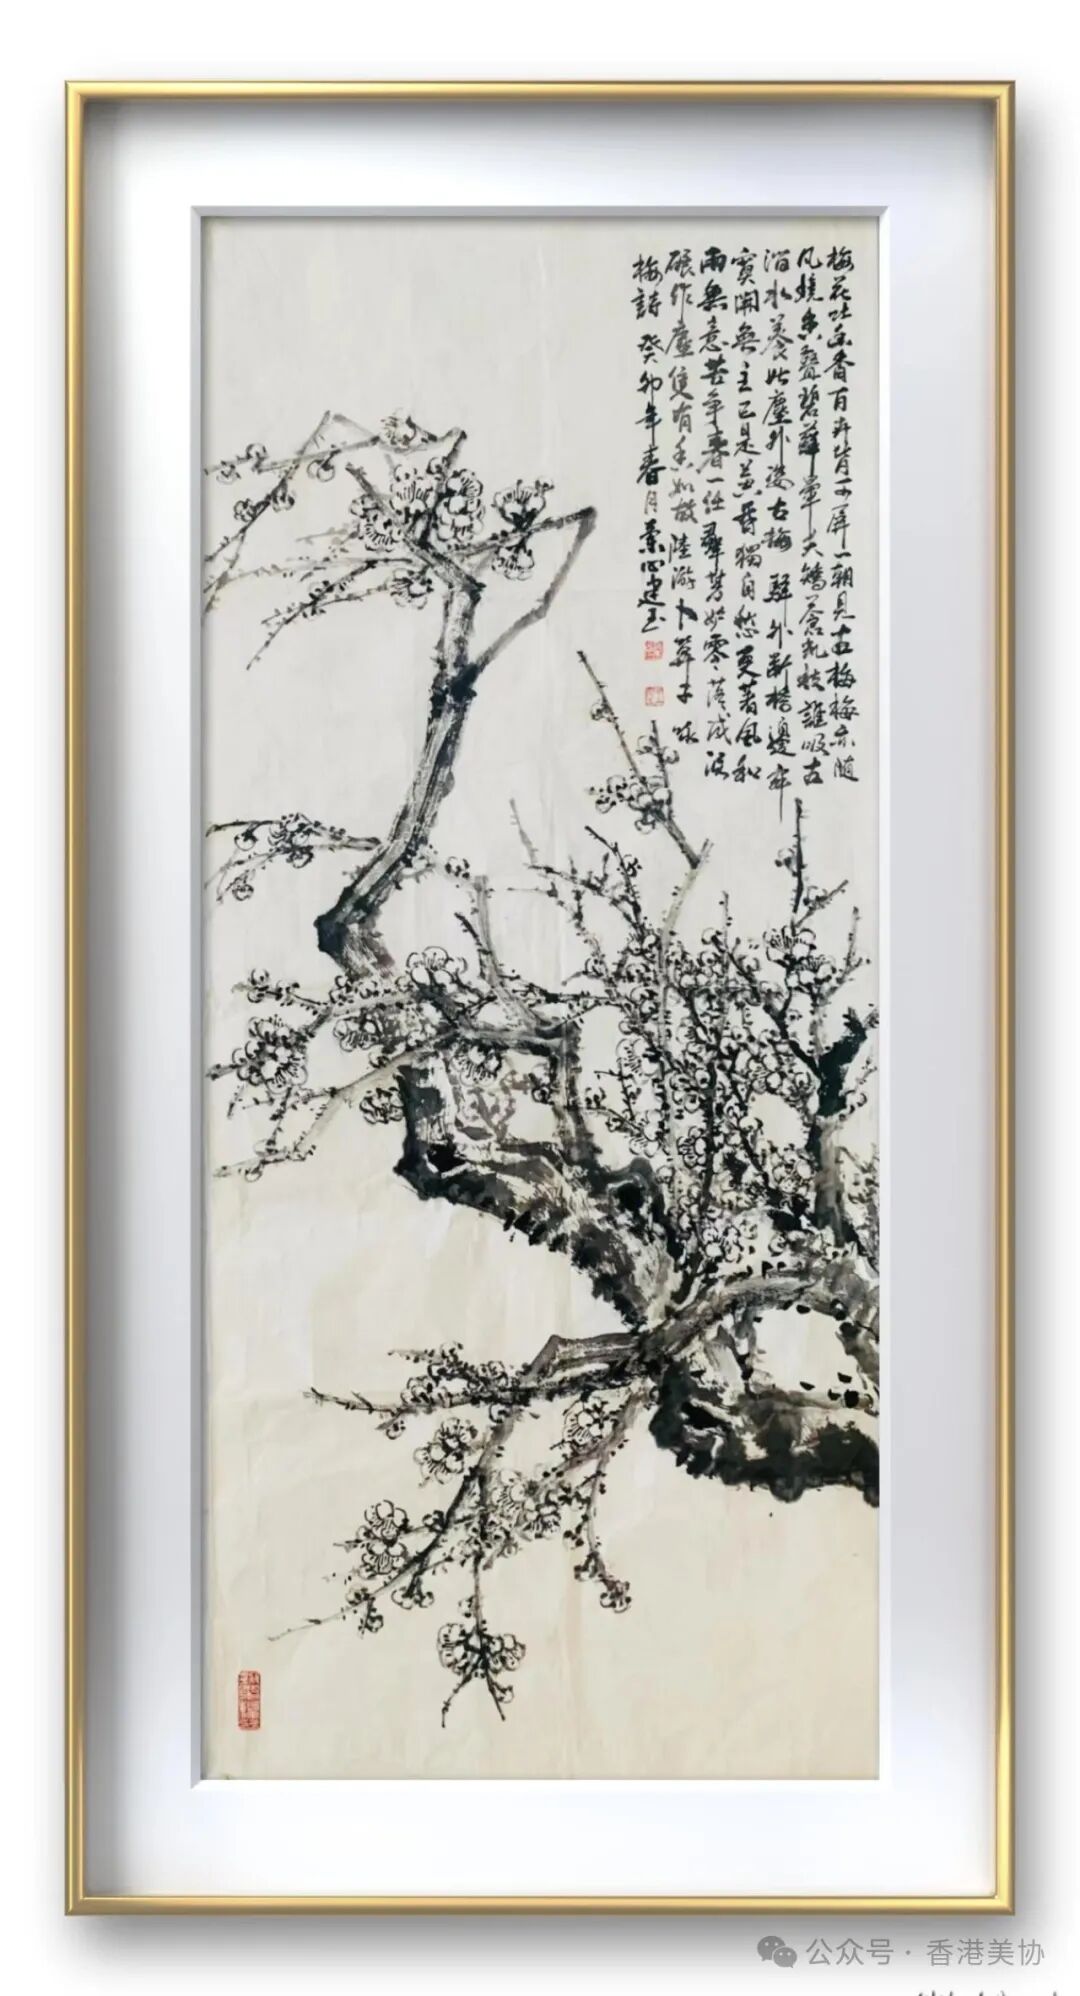 梅花吐幽香百卉皆可屏一朝見古梅梅亦随
凡境重疊碧蘚暈夭矯蒼虬枝誰吸古
澗水養此塵外姿古梅 驛外斷橋邊寂
寞開無主已是黄昏獨自愁更著風和
雨無意苦争春一任羣芳妒零落成泥
碾作塵隻有香如故陸游卜算子 咏
梅詩 癸卯年春月
公众号·香港美协